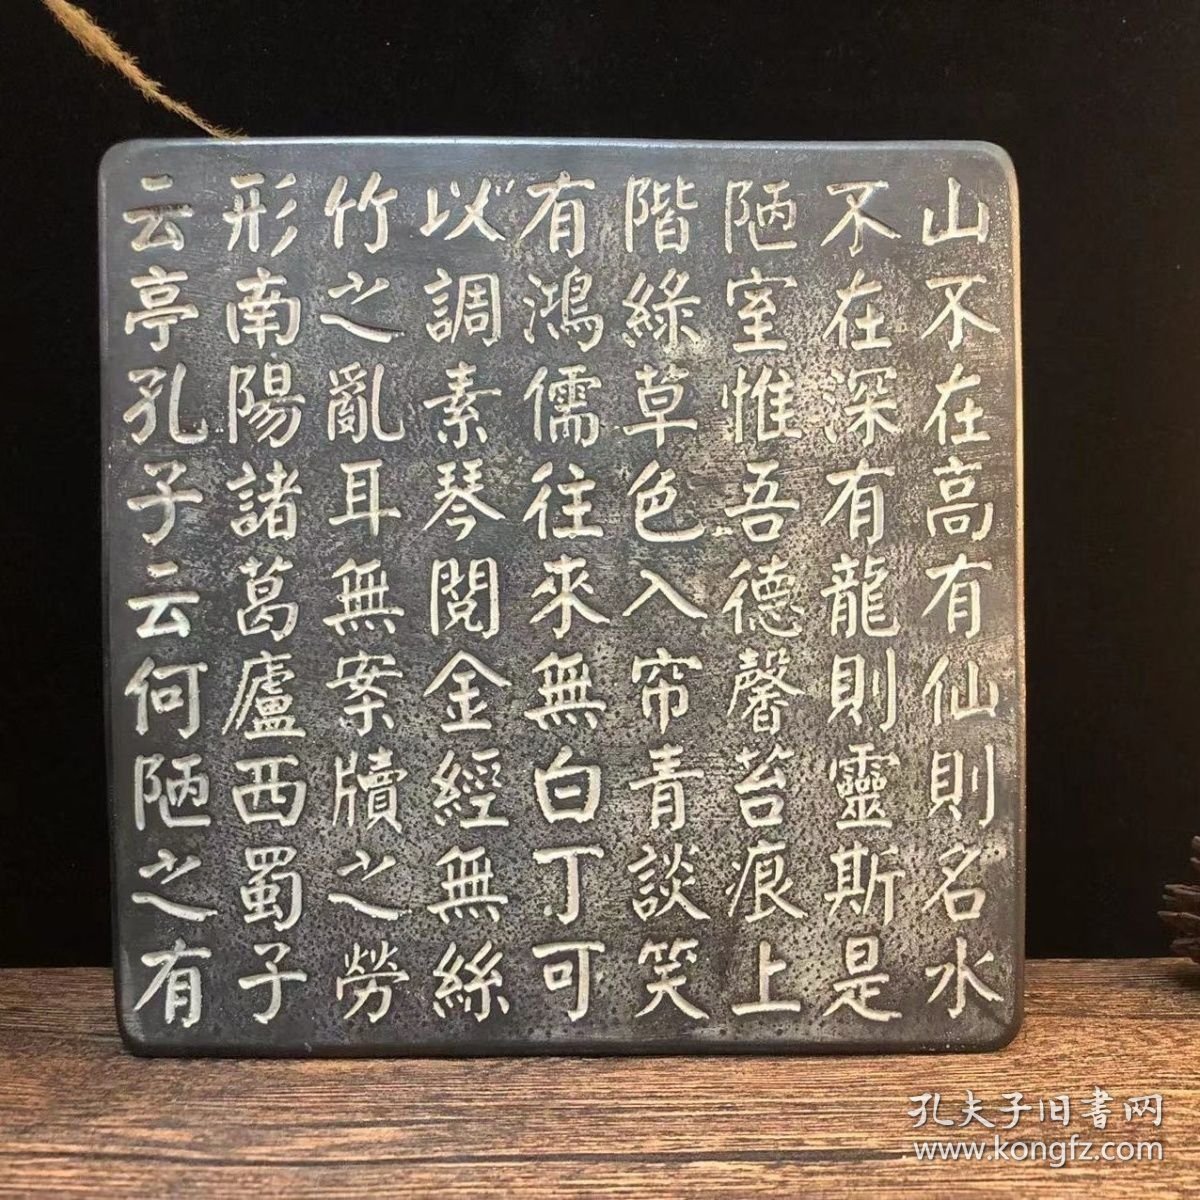 山不在高有仙則名水
不在深有龍則靈斯是
陋室惟吾德馨苔痕上
階綠草色入帘青談笑
有鴻儒往來無白丁可
以調素琴閱金經無絲
竹之亂耳無案牘之勞
形南陽諸葛廬西蜀子
云亭孔子云何陋之有
孔夫子旧书网
www.kongfz.com